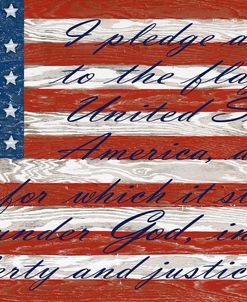 I pledge a
to the flag
United S
America, a
for which it st
under God, in
erty and justic